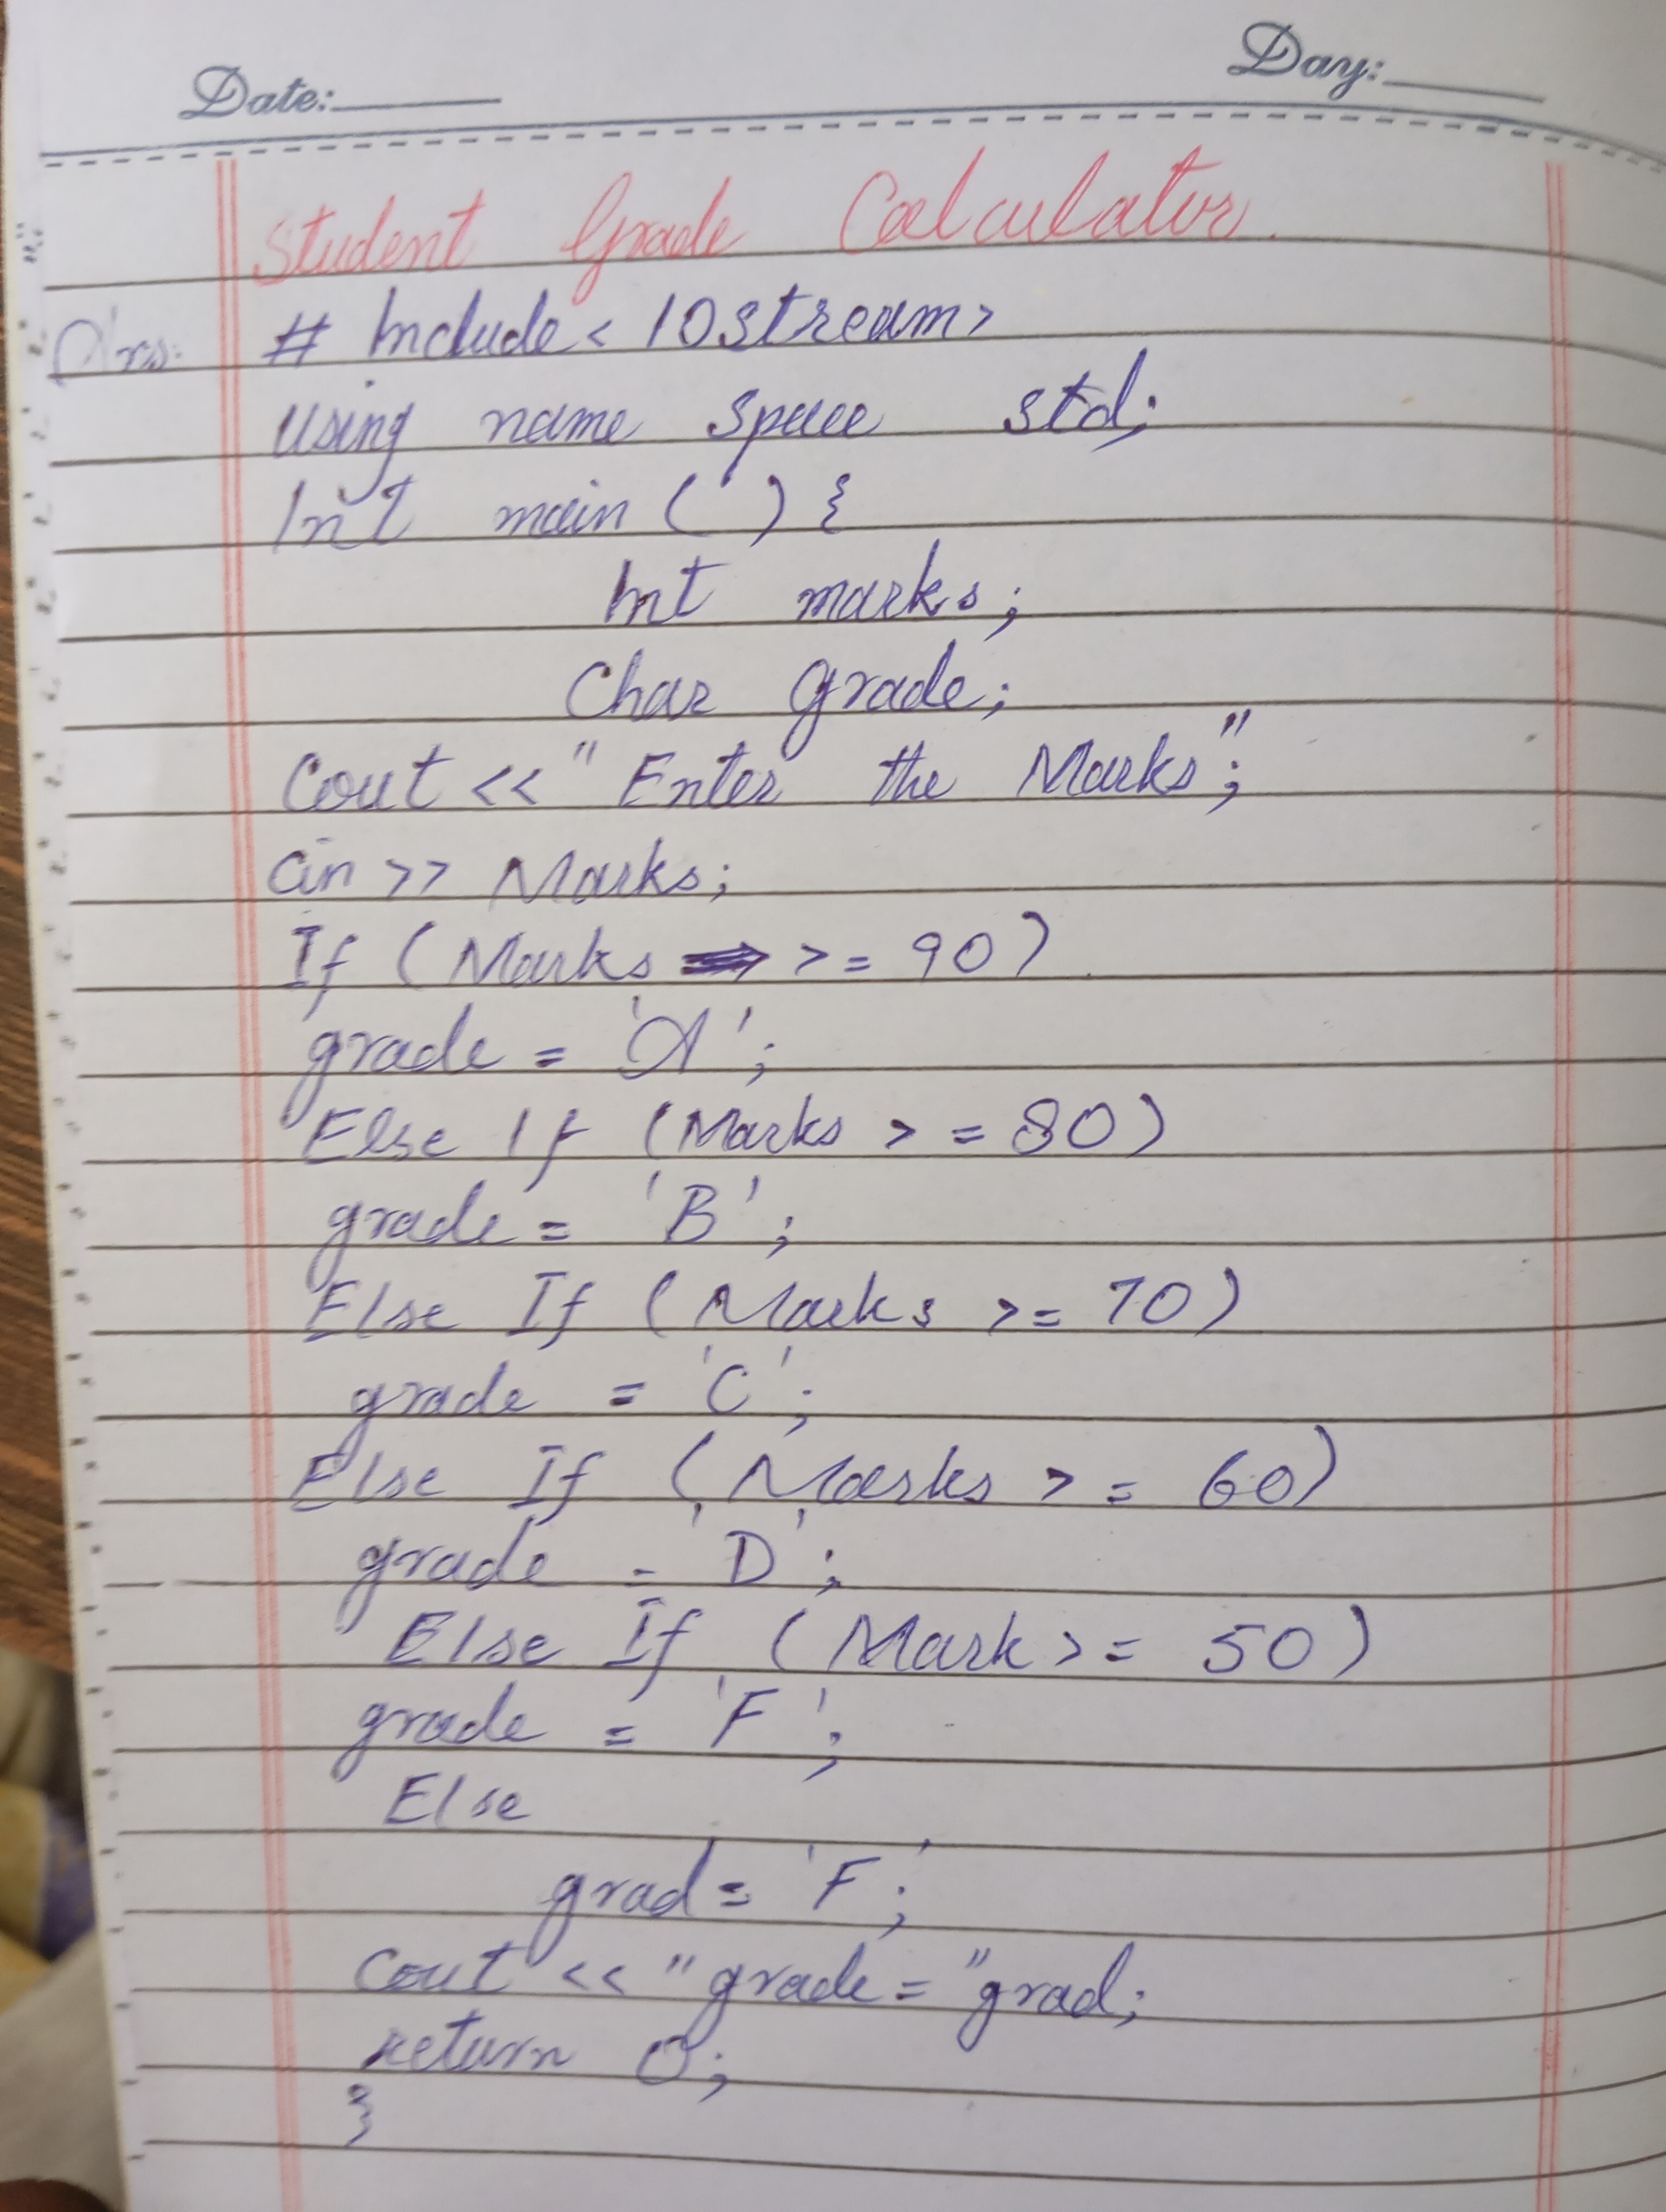 Date:
Day:
Student Grade Calculator.
Ans:
# Include < IOstream>
using name space std;
Int main ( ) {
Int marks;
Char grade;
Cout << " Enter the Marks";
Cin >> Marks;
If ( Marks >= 90)
grade = 'A';
Else If (Marks >= 80)
grade = 'B';
Else If ( Marks >= 70)
grade = 'C';
Else If ( Marks >= 60)
grade = 'D';
Else If ( Mark >= 50)
grade = 'F';
Else
grad = 'F';
Cout << "grade = "grad;
return 0;
}